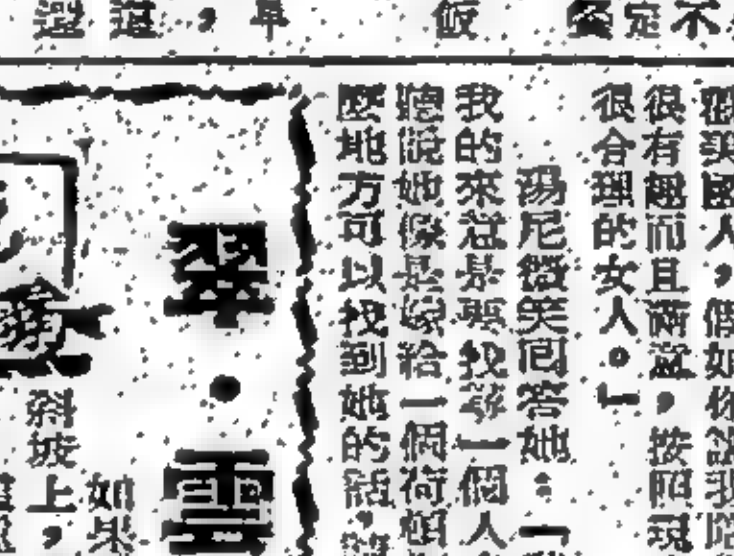 定不
飯
，早
美國人，假如你說我
很有趣而且兩，按照現
很合理的女人。」
湯尼微笑回答她：「
我的來意是要找尋一個人
聽說她像是嫁給一個荷頓
麼地方可以找到她的話，
翠・雲
如果
斜坡上，